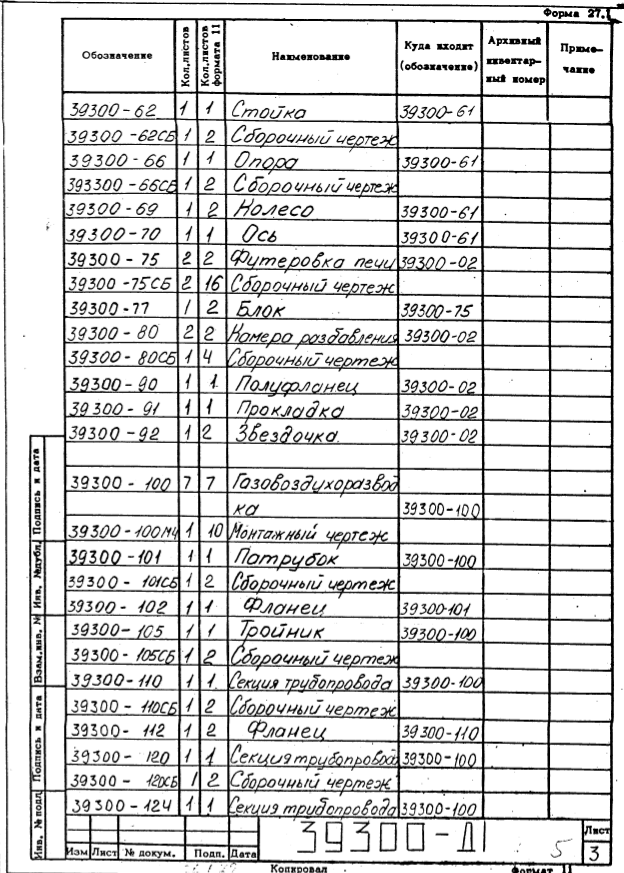 Форма 27.1
Обозначение Кол.листов Кол.листов формата 11 Наименование Куда входит (обозначение) Архивный инвентарный номер Примечание
39300-62 1 1 Стойка 39300-61
39300-62СБ 1 2 Сборочный чертеж
39300-66 1 1 Опора 39300-61
393300-66СБ 1 2 Сборочный чертеж
39300-69 1 2 Колесо 39300-61
39300-70 1 1 Ось 39300-61
39300-75 2 2 Футеровка печи 39300-02
39300-75СБ 2 16 Сборочный чертеж
39300-77 1 2 Блок 39300-75
39300-80 2 2 Камера розбавления 39300-02
39300-80СБ 1 4 Сборочный чертеж
39300-90 1 1 Полуфланец 39300-02
39300-91 1 1 Прокладка 39300-02
39300-92 1 2 Звездочка 39300-02
39300-100 7 7 Газовоздухоразвод
ка 39300-100
39300-100МЧ 1 10 Монтажный чертеж
39300-101 1 1 Патрубок 39300-100
39300-101СБ 1 2 Сборочный чертеж
39300-102 1 1 Фланец 39300-101
39300-105 1 1 Тройник 39300-100
39300-105СБ 1 2 Сборочный чертеж
39300-110 1 1 Секция трубопровода 39300-100
39300-110СБ 1 2 Сборочный чертеж
39300-112 1 2 Фланец 39300-110
39300-120 1 1 Секция трубопровода 39300-100
39300-120СБ 1 2 Сборочный чертеж
39300-124 1 1 Секция трубопровода 39300-100
Инв. № подл. Подпись и дата Взам.инв. № Инв. №дубл. Подпись и дата
39300-Д1 5
Лист
3
Изм Лист № докум. Подп. Дата
Копировал Формат 11